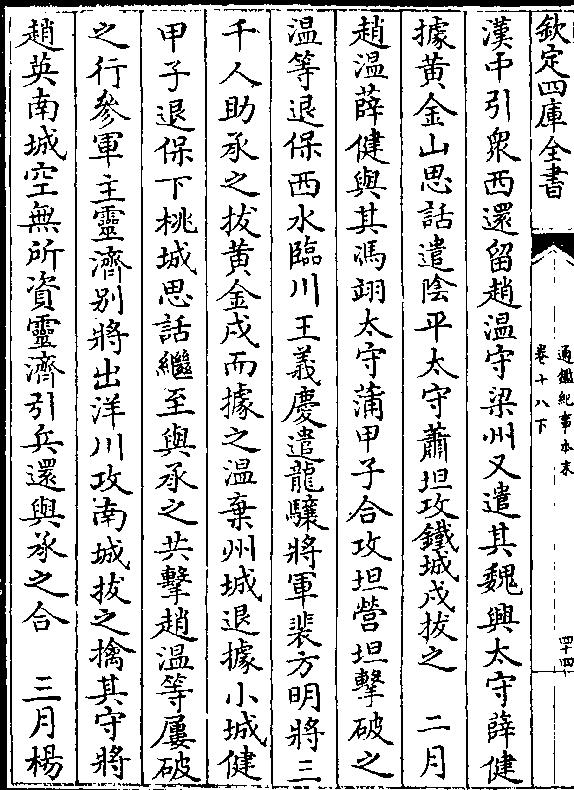 欽定四庫全書
通鑑紀事本末
卷十八下
四十四
漢中引衆西還留趙温守梁州又遣其魏興太守薛健
據黄金山思話遣陰平太守蕭坦攻鐵城戍拔之　二月
趙温薛健與其馮翊太守蒲甲子合攻坦營坦擊破之
温等退保西水臨川王義慶遣龍驤將軍裴方明將三
千人助承之拔黄金戍而據之温棄州城退據小城健
甲子退保下桃城思話繼至與承之共擊趙温等屢破
之行參軍王靈濟别將出洋川攻南城拔之擒其守將
趙英南城空無所資靈濟引兵還與承之合　三月楊